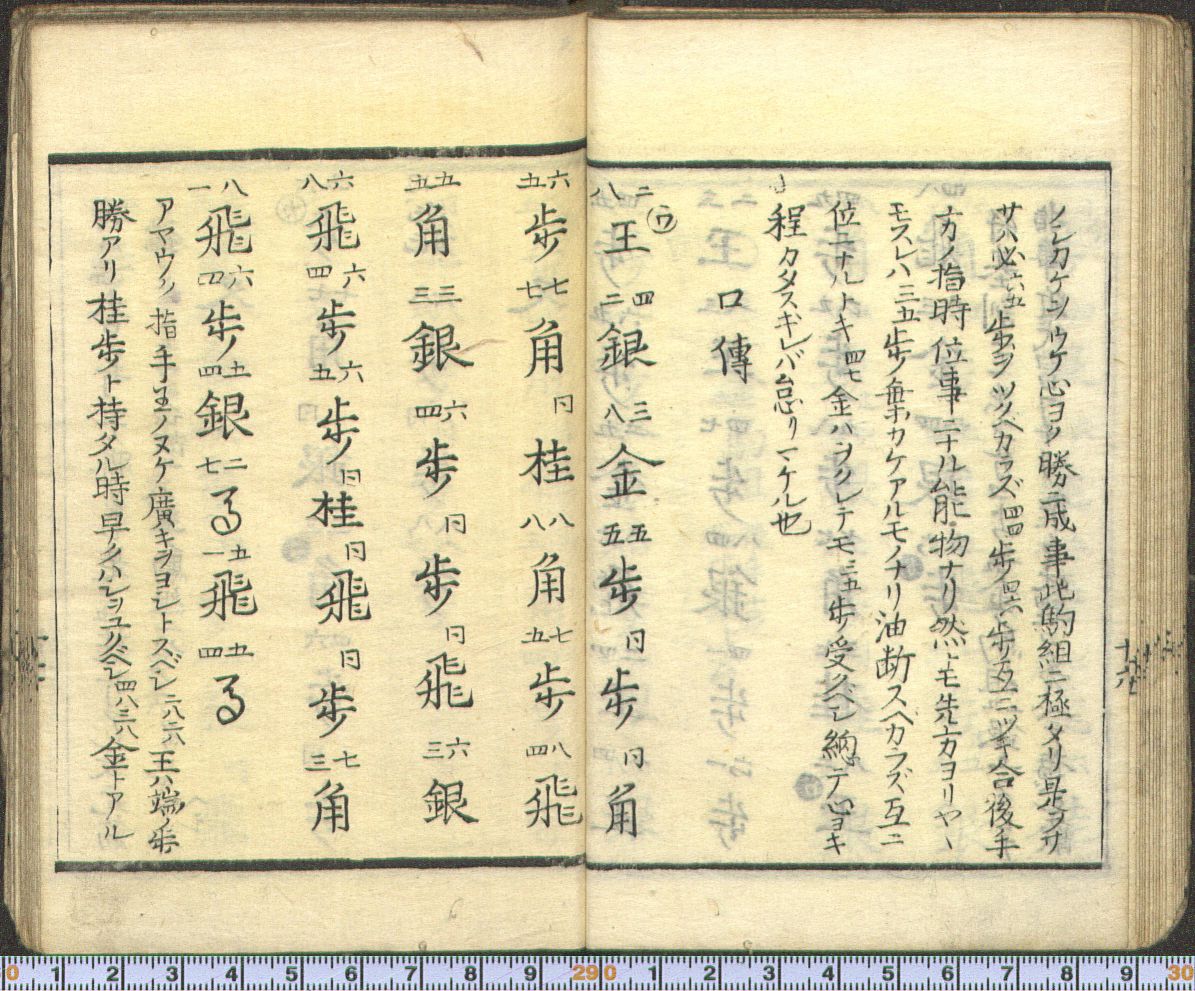 ノレカケシノウケ心ヨク勝ニ成事此駒組ニ極タリ是ヲサ
サハ必六五歩ヲツクヘカラズ四四歩ノ四六歩互ニツキ合後手
方ノ指時位事ニナル能物ナリ然モ先方ヨリヤヽ
モスレハ三五歩乗カケアルモノナリ油断スベカラズ互ニ
位ニナルトキ四七金ハヲクレテモ三五歩受クベシ納テ心ヨキ
程カタスギレバ怠リマケル也
口傳
二八王 四二銀 三八金 五五歩 同歩 同角
六五歩 七七角 同桂 八八角 七五歩 八四飛
五五角 三三銀 六四歩 同歩 同飛 六三銀
六八飛 六四歩 六五歩 同桂 同飛 同歩 七三角
八一飛 六四歩 五四銀 二七馬 五一飛 五四馬
アヤウシ指手王ノヌケ廣キヲヨシトスベシ二八二六王ハ端歩
勝アリ桂歩ト持タル時早クハシヲユクベシ四八三八金トアル
ウ
十六